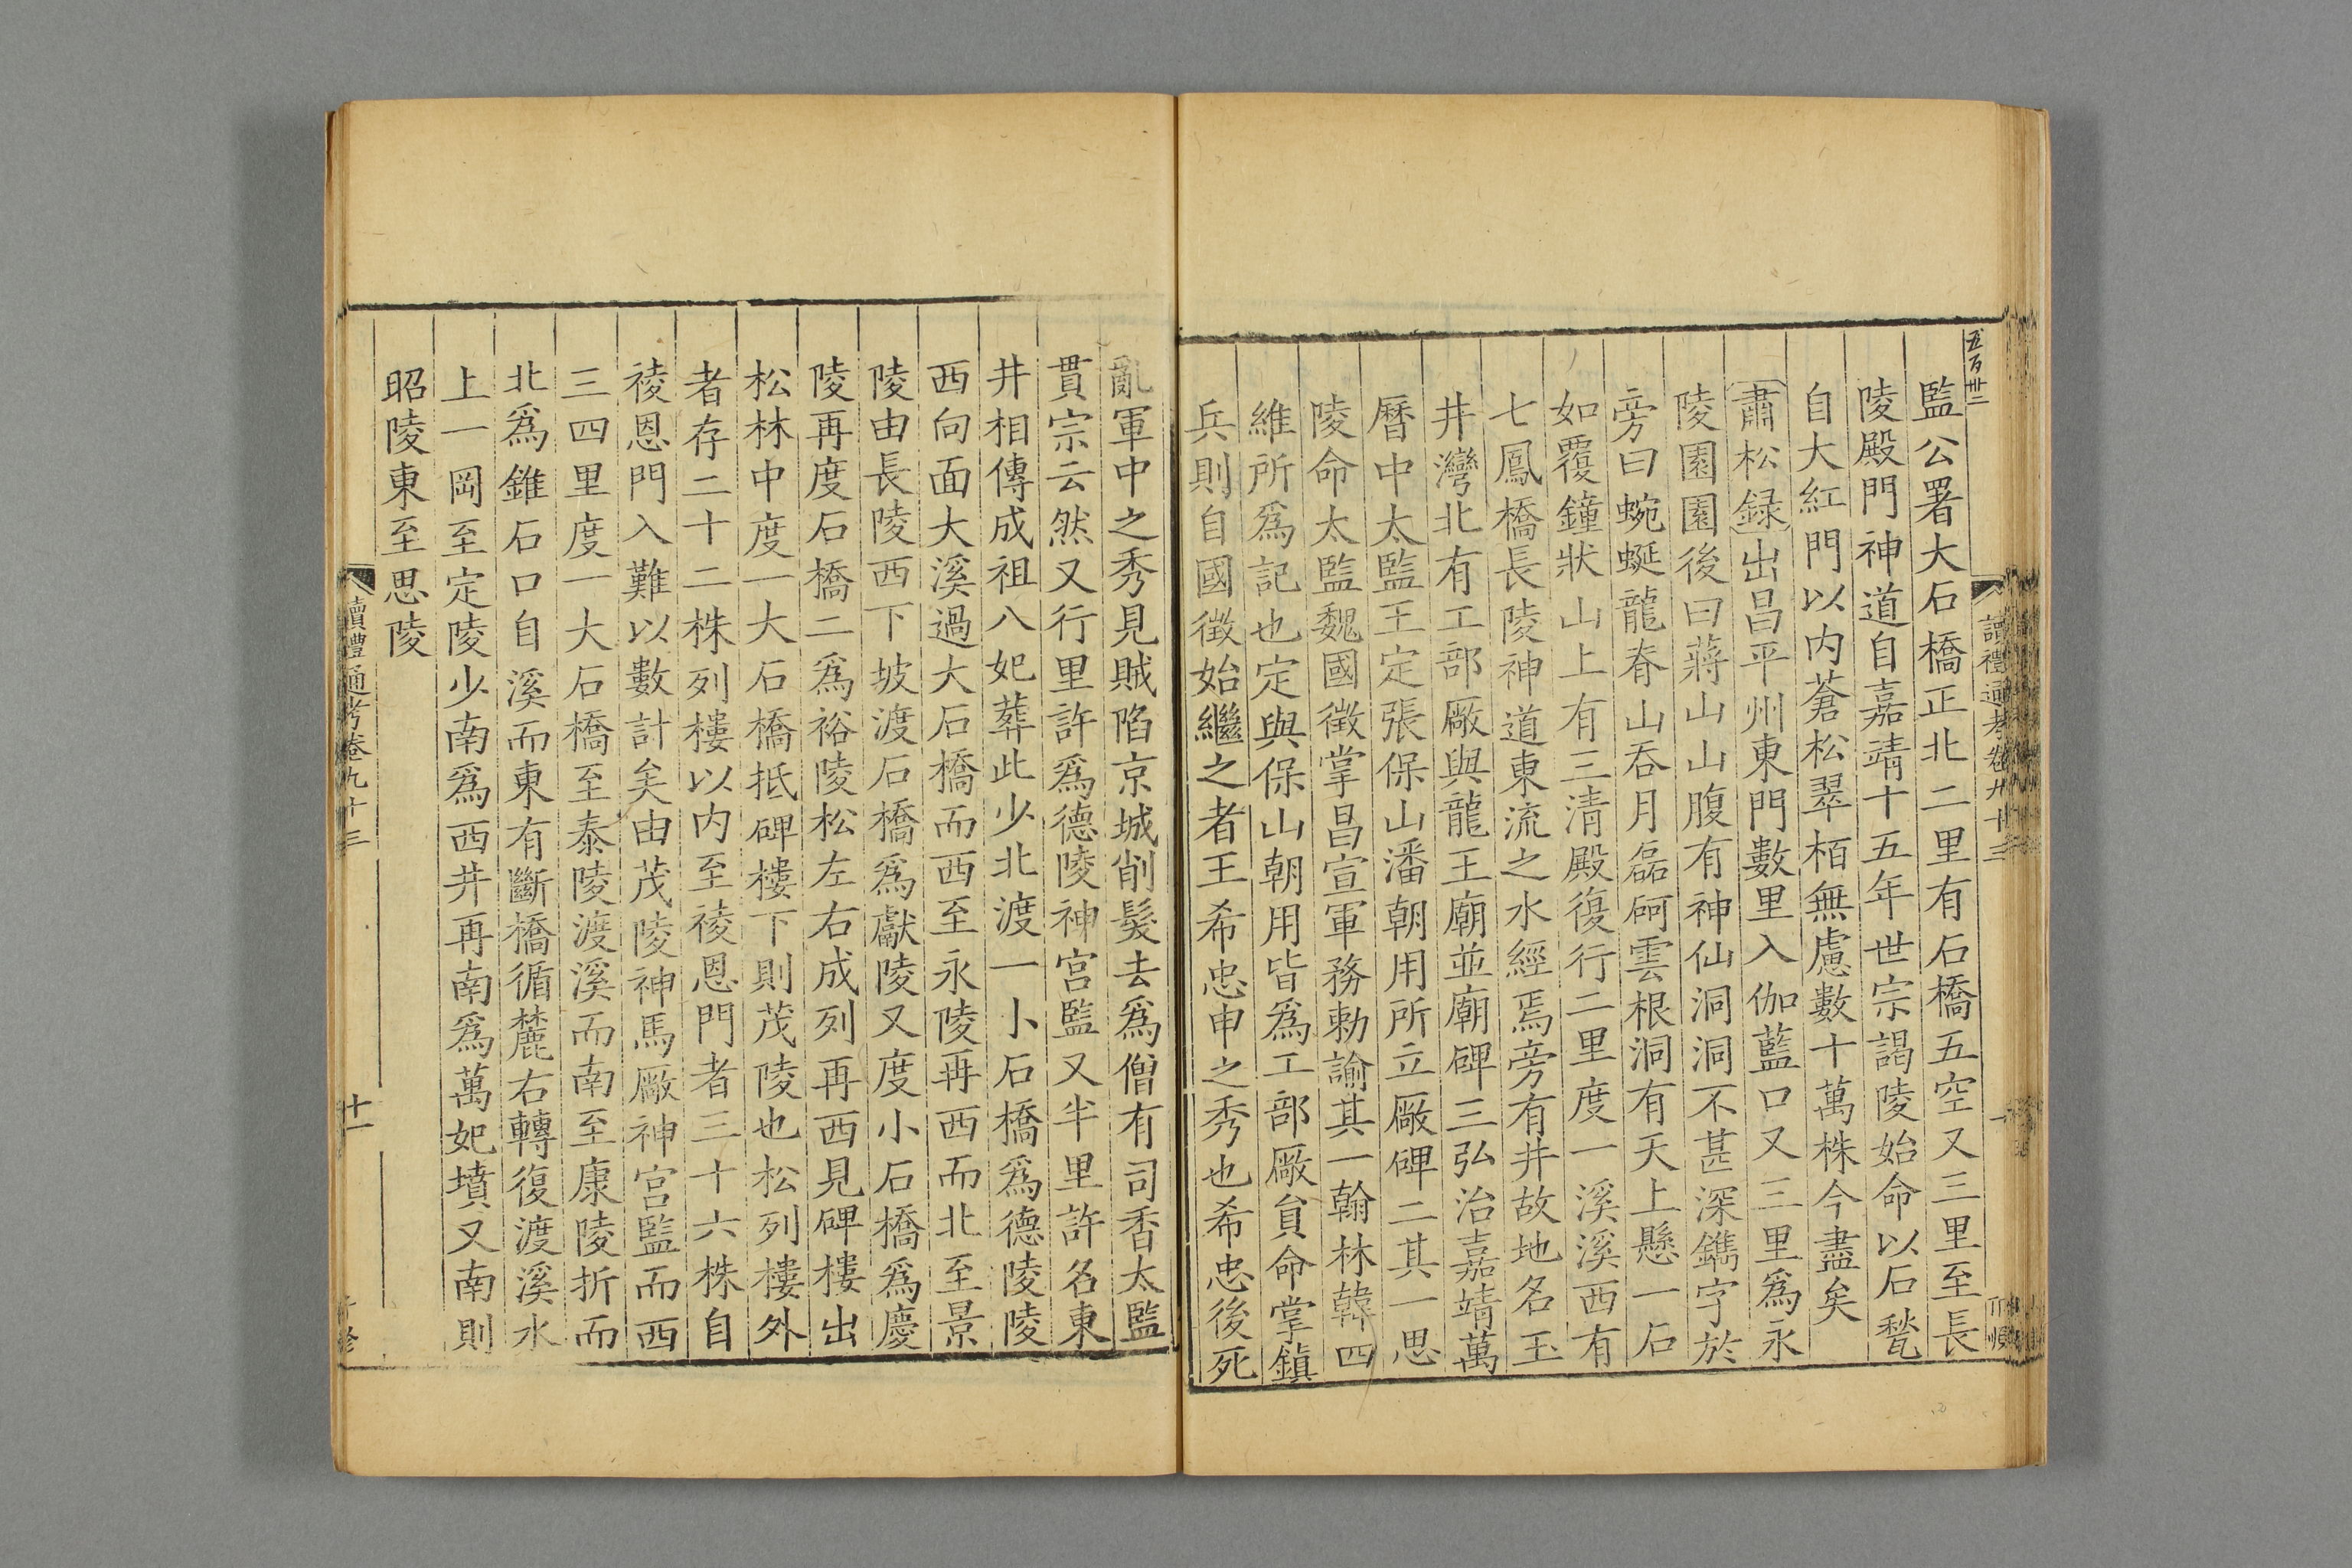 五百卅二
讀禮通考卷九十三
監公署大石橋正北二里有石橋五空又三里至長
陵殿門神道自嘉靖十五年世宗謁陵始命以石甃
自大紅門以内蒼松翠栢無慮數十萬株今盡矣
肅松録出昌平州東門數里入伽藍口又三里爲永
陵園園後曰蔣山山腹有神仙洞洞不甚深鐫字於
旁曰蜿蜒龍眷山吞月磊砢雲根洞有天上懸一石
如覆鐘狀山上有三清殿復行二里度一溪溪西有
七鳳橋長陵神道東流之水經焉旁有井故地名玉
井灣北有工部廠與龍王廟並廟碑三弘治嘉靖萬
曆中太監王定張保山潘朝用所立廠碑二其一思
陵命太監魏國徵掌昌宣軍務勅諭其一翰林韓四
維所爲記也定與保山朝用皆爲工部廠貟命掌鎮
兵則自國徵始繼之者王希忠申之秀也希忠後死
亂軍中之秀見賊陷京城削髮去爲僧有司香太監
貫宗云然又行里許爲德陵神宫監又半里許名東
井相傳成祖八妃葬此少北渡一小石橋爲德陵陵
西向面大溪過大石橋而西至永陵再西而北至景
陵由長陵西下坡渡石橋爲獻陵又度小石橋爲慶
陵再度石橋二爲裕陵松左右成列再西見碑樓出
松林中度一大石橋抵碑樓下則茂陵也松列樓外
者存二十二株列樓以内至祾恩門者三十六株自
祾恩門入難以數計矣由茂陵神馬廠神宫監而西
三四里度一大石橋至泰陵渡溪而南至康陵折而
北爲錐石口自溪而東有斷橋循麓右轉復渡溪水
上一岡至定陵少南爲西井再南爲萬妃墳又南則
昭陵東至思陵
讀禮通考卷九十三
十一